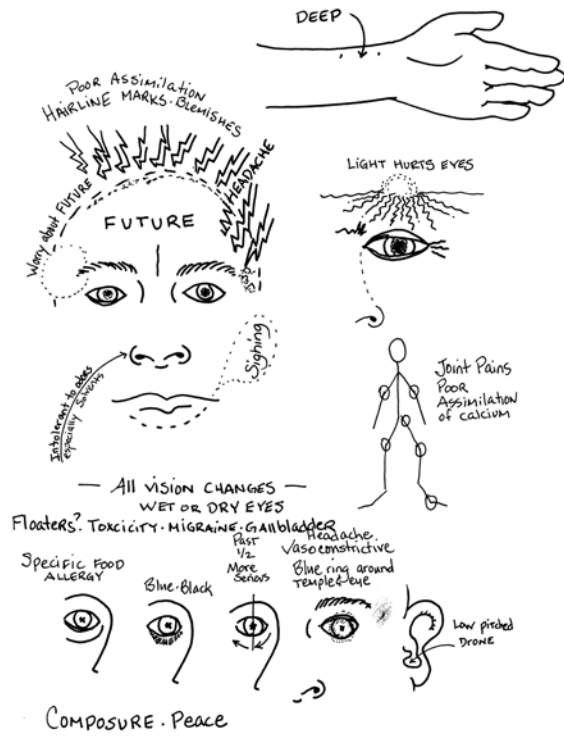 DEEP
POOR ASSIMILATION
HAIRLINE MARKS·BLEMISHES
HEADACHE
Worry about FUTURE
FUTURE
LIGHT HURTS EYES
Sighing
Intolerant to odors
especially Solvents
Joint Pains
POOR
ASSIMILATION
of calcium
— All vision CHANGES —
WET OR DRY EYES
Floaters? TOXCICITY·MIGRAINE·GAllbladder
SPECIFIC FOOD
ALLERGY
Blue·Black
Past
1/2
More
Serious
Headache.
Vasoconstrictive
Blue ring around
Temple & eye
Low pitched
DRONE
COMPOSURE · Peace